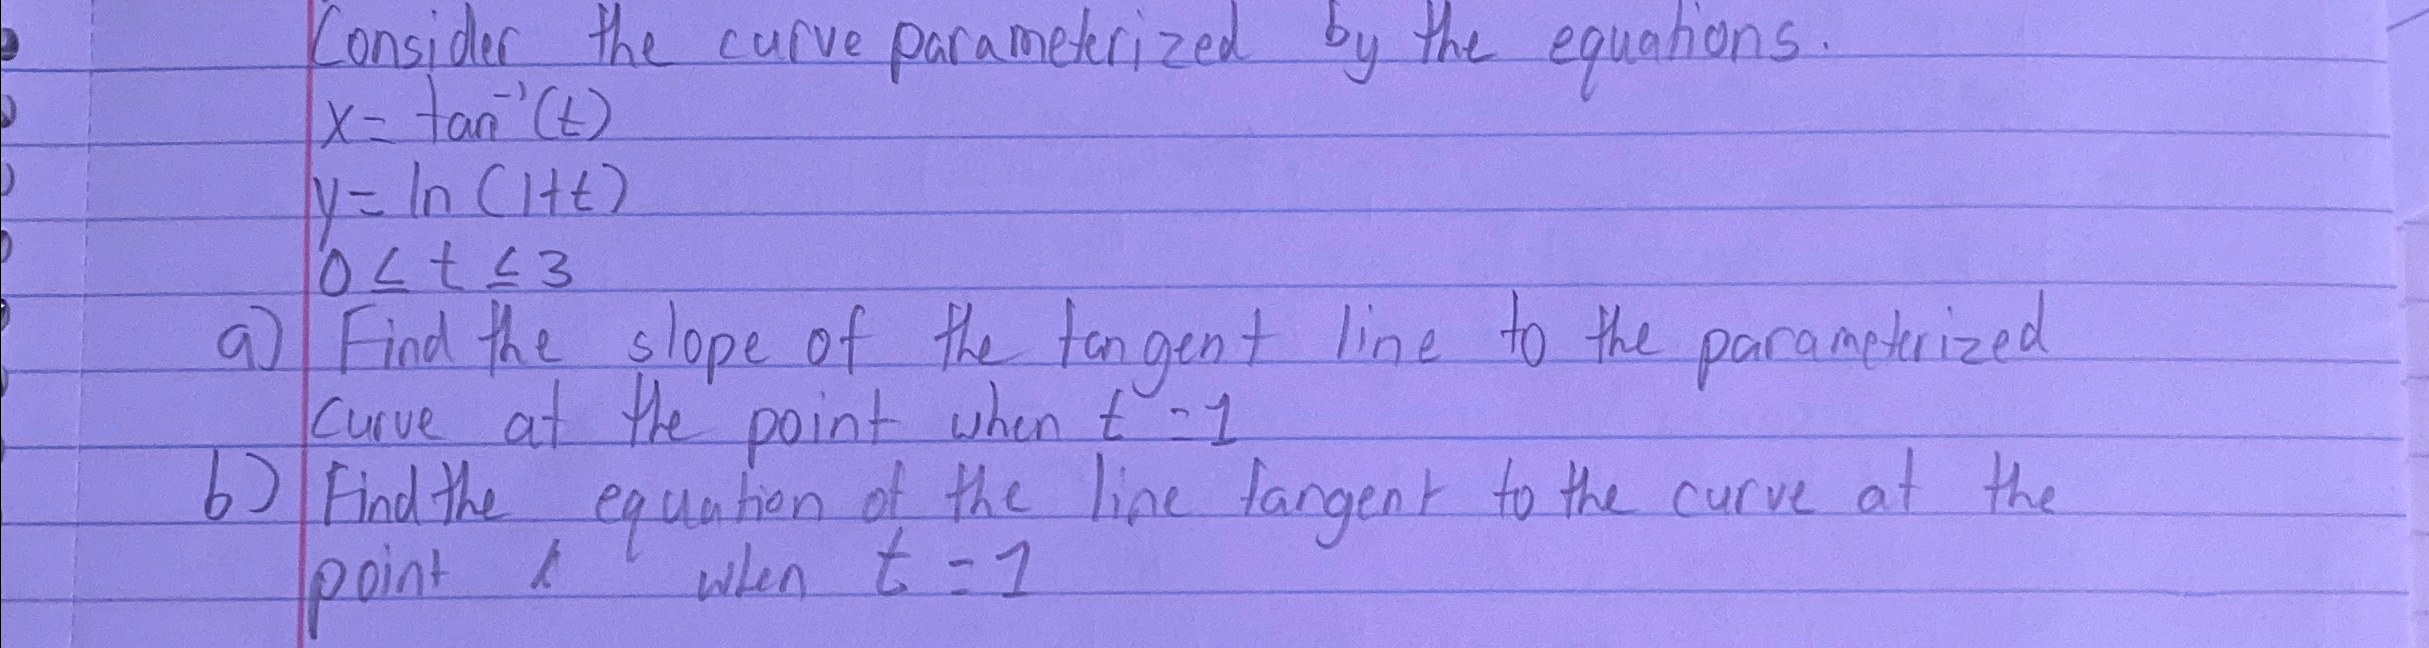 Consider the curve parameterized by the equations.
x = tan⁻¹(t)
y = ln (1+t)
0 ≤ t ≤ 3
a) Find the slope of the tangent line to the parameterized
curve at the point when t = 1
b) Find the equation of the line tangent to the curve at the
point when t = 1